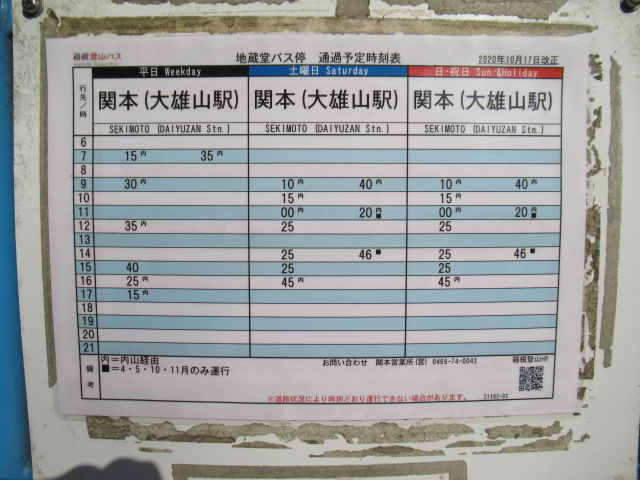 箱根登山バス 地蔵堂バス停 通過予定時刻表 2020年10月17日改正
行先/時 平日 Weekday 土曜日 Saturday 日・祝日 Sun.&Holiday
関本(大雄山駅) 関本(大雄山駅) 関本(大雄山駅)
SEKIMOTO (DAIYUZAN Stn.) SEKIMOTO (DAIYUZAN Stn.) SEKIMOTO (DAIYUZAN Stn.)
6
7 15内 35内
8
9 30内 10内 40内 10内 40内
10 15内 15内
11 00内 20内■ 00内 20内■
12 35内 25 25
13
14 25 46■ 25 46■
15 40 25 25
16 25内 45内 45内
17 15内
18
19
20
21
備考 内=内山経由 お問い合わせ 関本営業所(営) 0465-74-0043 箱根登山HP
■=4・5・10・11月のみ運行
※道路状況により時刻どおり運行できない場合があります。 21102-02